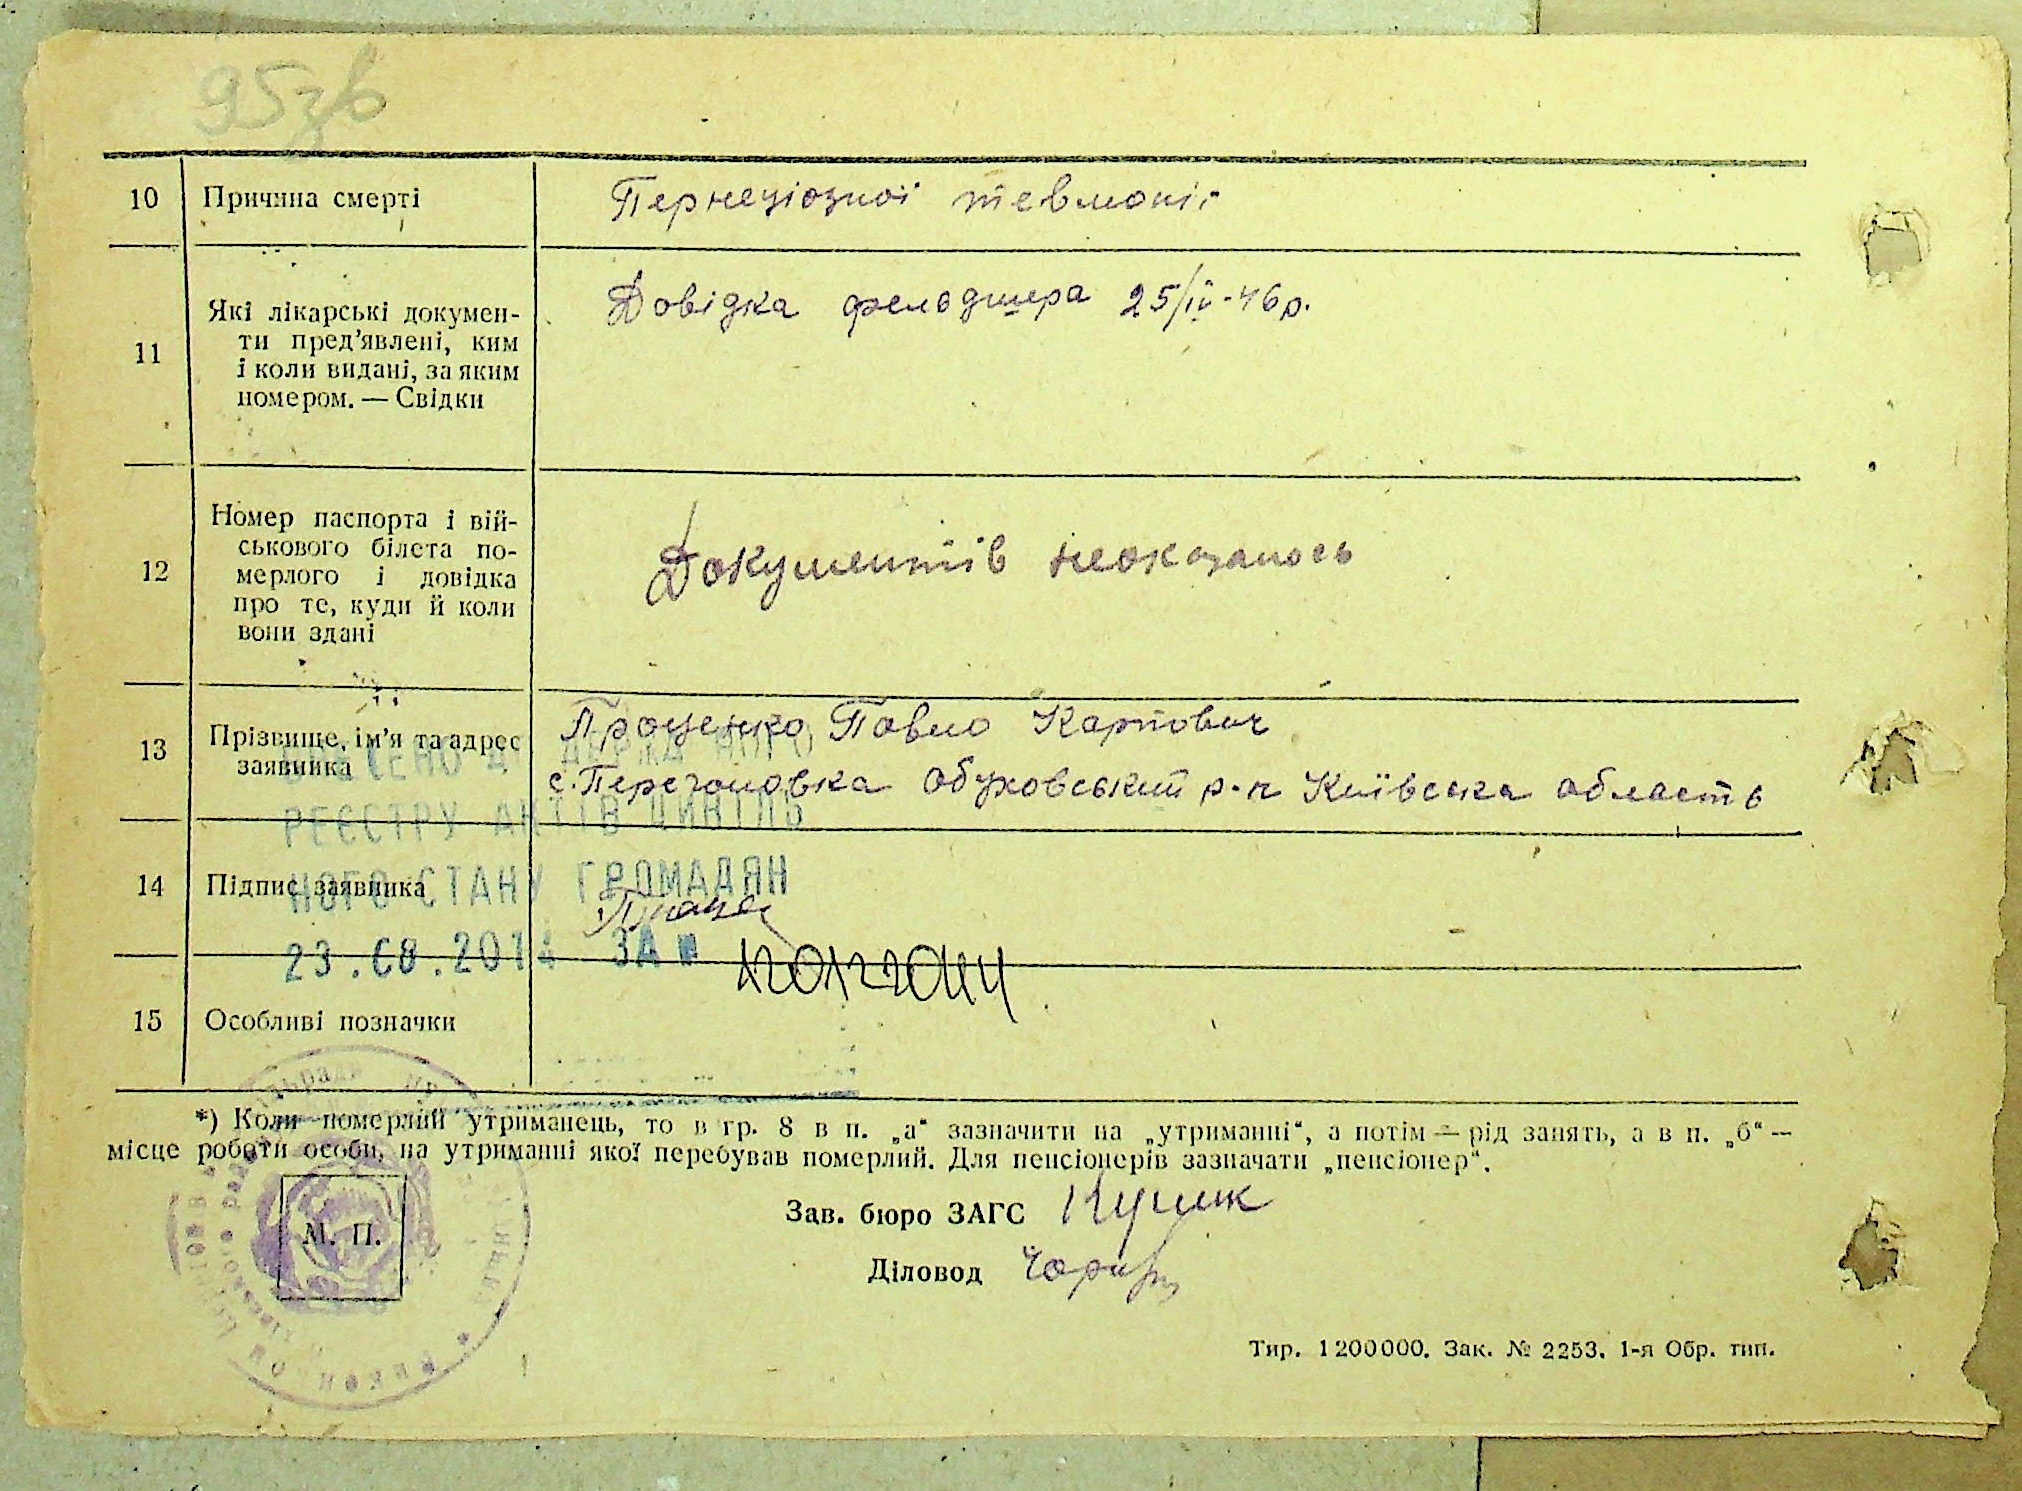 95зв
10 Причина смерті Пернеціозної певмонії
11 Які лікарські докумен-
ти пред'явлені, ким
і коли видані, за яким
номером. — Свідки
Довідка фельдшера 25/IV-46р.
12 Номер паспорта і вій-
ськового білета по-
мерлого і довідка
про те, куди й коли
вони здані
Документів неоказалось
13 Прізвище, ім'я та адрес
заявника
Проценко Павло Карпович
с. Перегоновка Обуховський р-н Київська область
ВНЕСЕНО ДО ДЕРЖАВНОГО
РЕЄСТРУ АКТІВ ЦИВІЛЬ
НОГО СТАНУ ГРОМАДЯН
23.08.2014 ЗА №
14 Підпис заявника
15 Особливі позначки
*) Коли померлий утриманець, то в гр. 8 в п. „а“ зазначити на „утриманні“, а потім — рід занять, а в п. „б“ —
місце роботи особи, на утриманні якої перебував померлий. Для пенсіонерів зазначати „пенсіонер“.
М. П.
Зав. бюро ЗАГС
Діловод
Тир. 1200000. Зак. № 2253. 1-я Обр. тип.